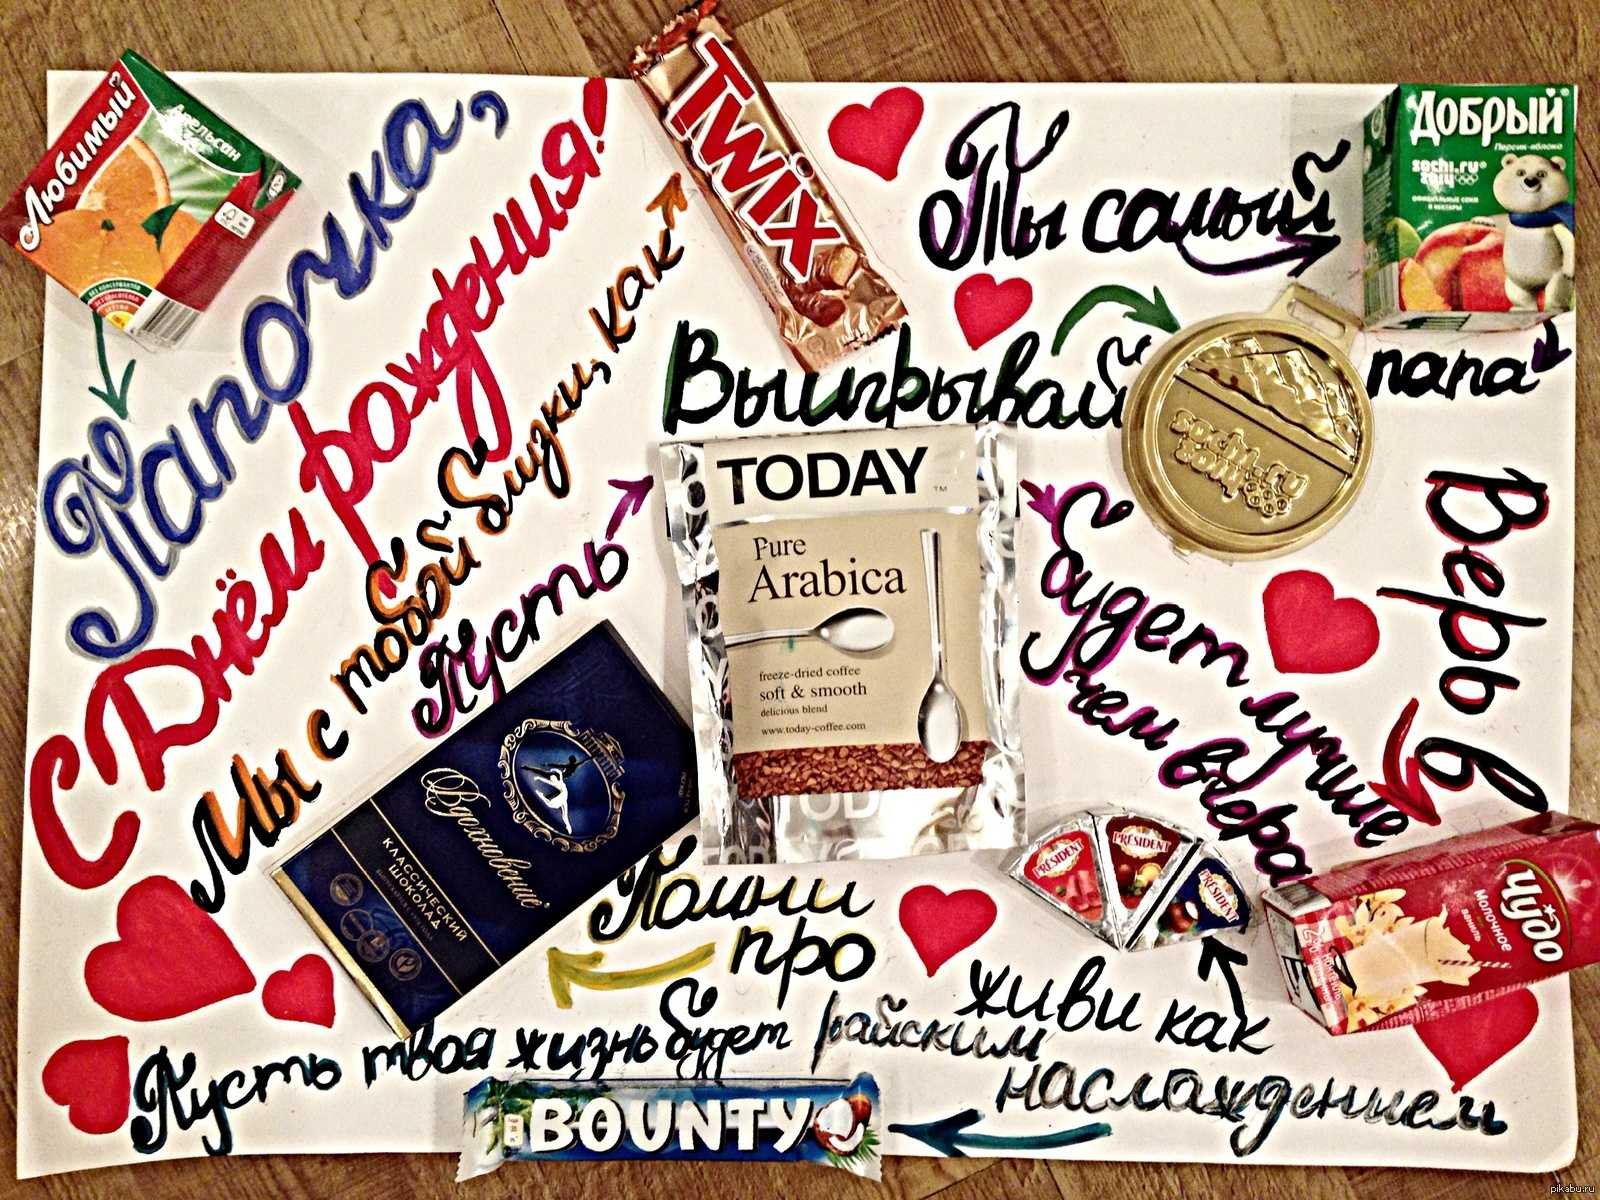 Любимый
Апельсин
Папочка,
С Днём рождения!
Мы с тобой близки, как
TWIX
Ты самый
ДОБРЫЙ
Персик-яблоко
sochi.ru
2014
официальные соки
и нектары
папа
Выигрывай
sochi.ru
2014
Пусть
TODAY
TM
Pure
Arabica
freeze-dried coffee
soft & smooth
delicious blend
www.today-coffee.com
будет лучше
чем вчера
Верь в
Чудо
Молочное
ваниль
Помни
про
Вдохновение
КЛАССИЧЕСКИЙ
ШОКОЛАД
живи как
PRÉSIDENT
PRÉSIDENT
PRÉSIDENT
Пусть твоя жизнь будет райским
наслаждением
BOUNTY
pikabu.ru